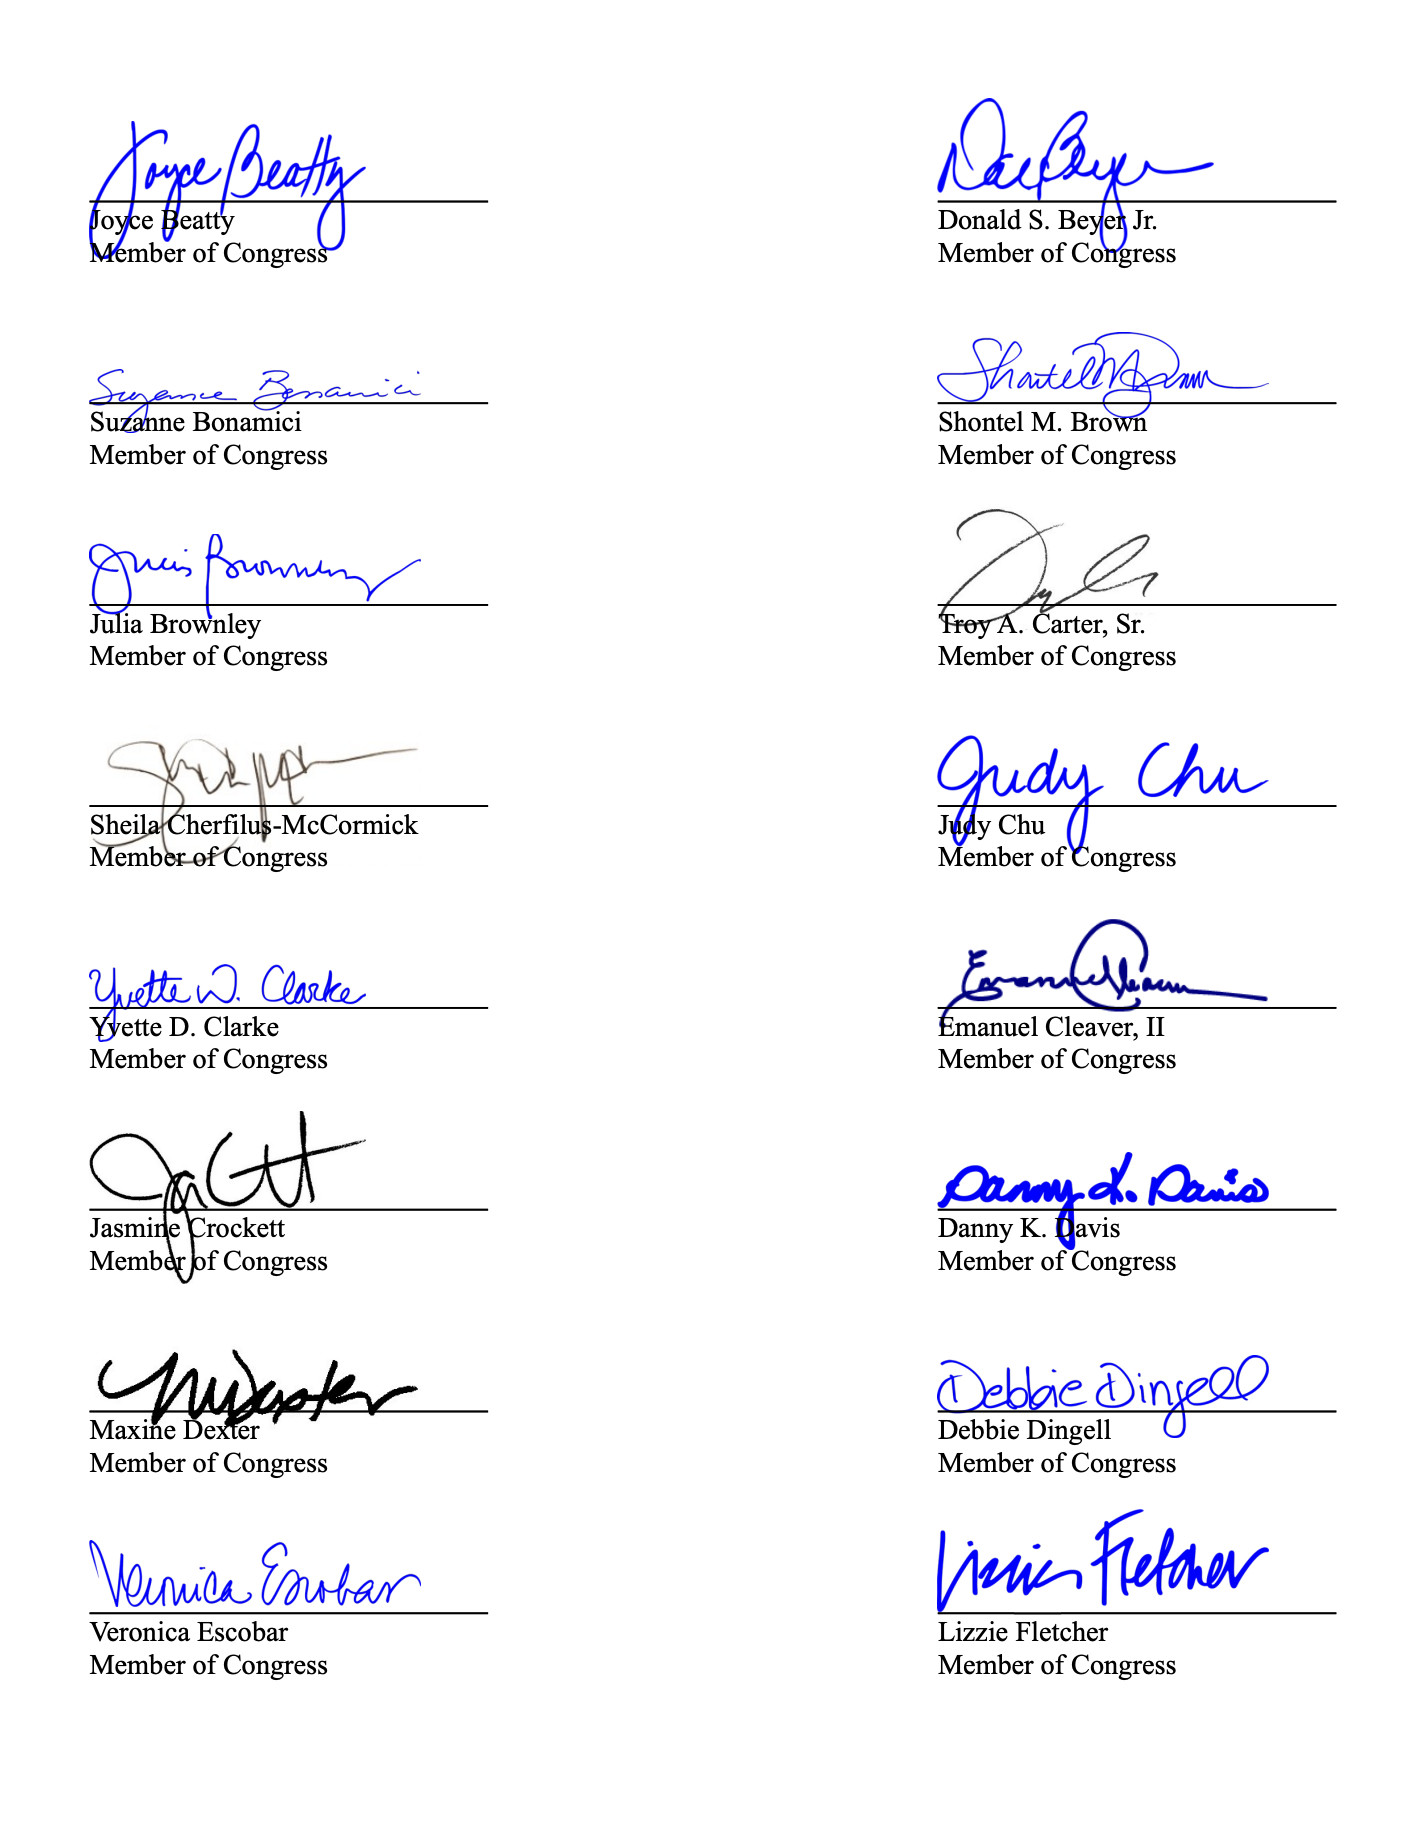 Joyce Beatty
Joyce Beatty
Member of Congress
Don Beyer
Donald S. Beyer Jr.
Member of Congress
Suzanne Bonamici
Suzanne Bonamici
Member of Congress
Shontel M Brown
Shontel M. Brown
Member of Congress
Julia Brownley
Julia Brownley
Member of Congress
Troy A. Carter, Sr.
Member of Congress
Sheila Cherfilus-McCormick
Member of Congress
Judy Chu
Judy Chu
Member of Congress
Yvette D. Clarke
Yvette D. Clarke
Member of Congress
Emanuel Cleaver
Emanuel Cleaver, II
Member of Congress
Jasmine Crockett
Member of Congress
Danny K. Davis
Danny K. Davis
Member of Congress
MDexter
Maxine Dexter
Member of Congress
Debbie Dingell
Debbie Dingell
Member of Congress
Veronica Escobar
Veronica Escobar
Member of Congress
Lizzie Fletcher
Lizzie Fletcher
Member of Congress